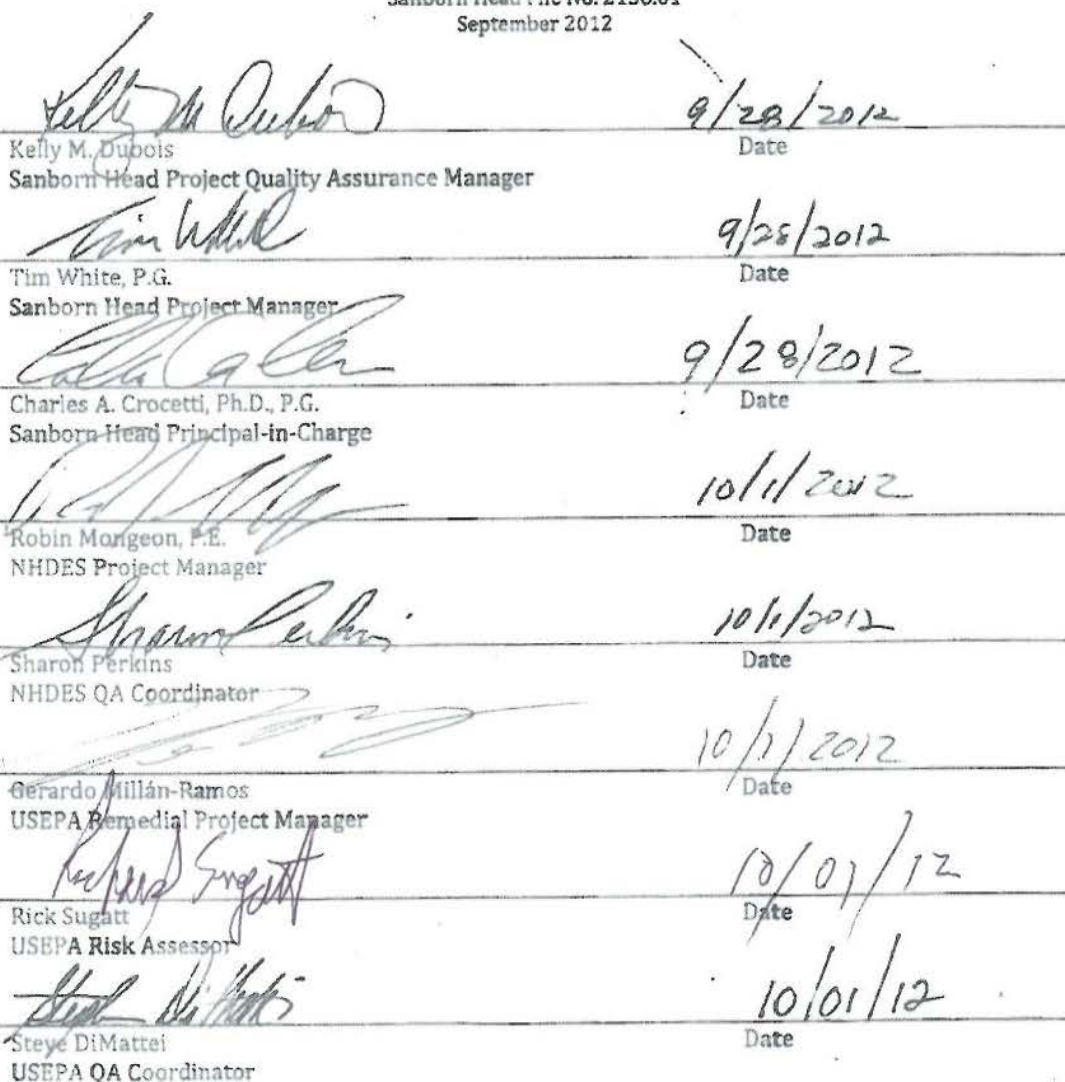 September 2012
Kelly M Dubois 9/28/2012
Kelly M. Dubois Date
Sanborn Head Project Quality Assurance Manager
Tim White 9/28/2012
Tim White, P.G. Date
Sanborn Head Project Manager
9/28/2012
Charles A. Crocetti, Ph.D., P.G. Date
Sanborn Head Principal-in-Charge
10/1/2012
Robin Mongeon, P.E. Date
NHDES Project Manager
Sharon Perkins 10/1/2012
Sharon Perkins Date
NHDES QA Coordinator
10/1/2012
Gerardo Millán-Ramos Date
USEPA Remedial Project Manager
Richard Sugatt 10/01/12
Rick Sugatt Date
USEPA Risk Assessor
10/01/12
Steve DiMattei Date
USEPA QA Coordinator